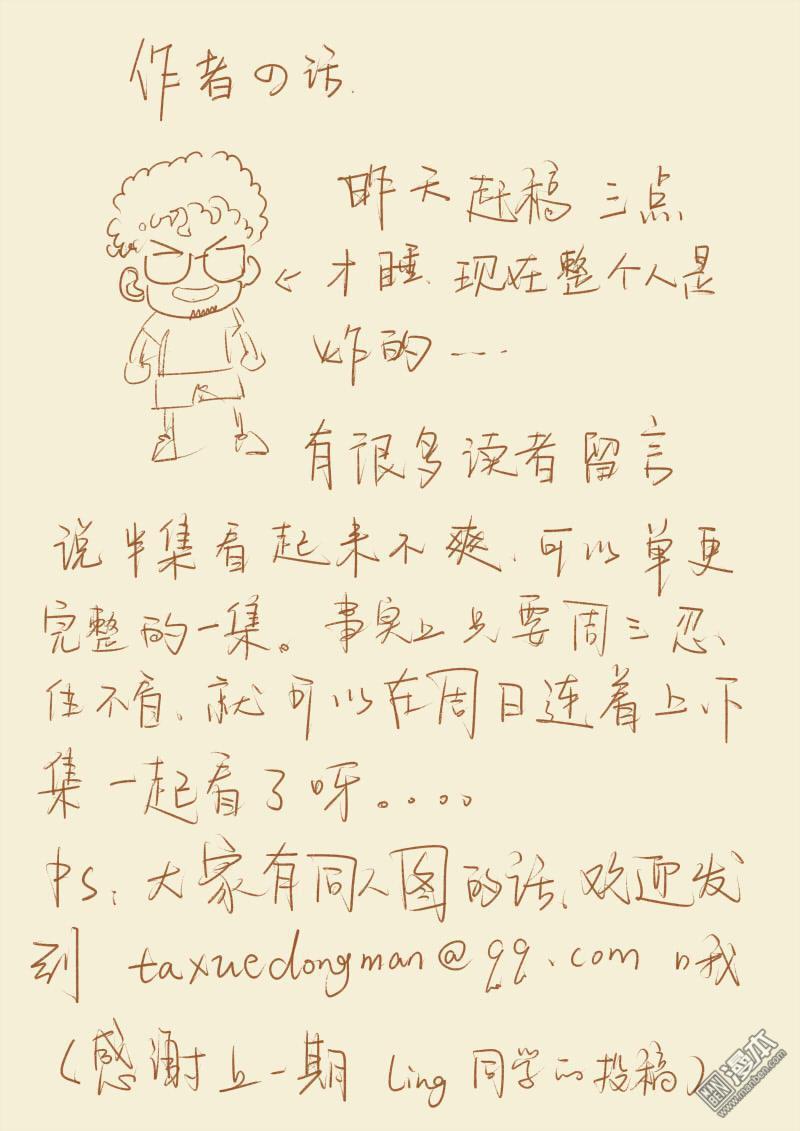 作者の话.
昨天赶稿三点
才睡.现在整个人是
炸的……
有很多读者留言
说半集看起来不爽、可以单更
完整的一集。事实上只要周三忍
住不看、就可以在周日连着上下
集一起看了呀。。。。
PS:大家有同人图的话、欢迎发
到 taxuedongman@qq.com 哦
(感谢上一期 Ling 同学的投稿)
漫本
www.manben.com